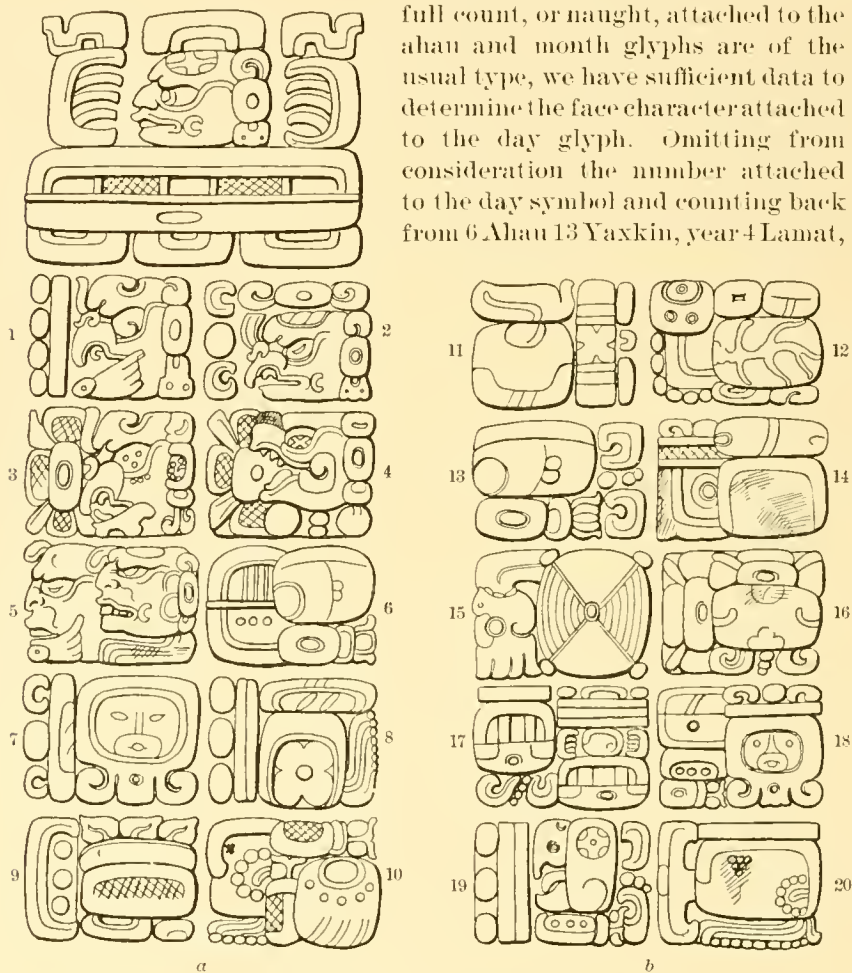 full count, or naught, attached to the
ahau and month glyphs are of the
usual type, we have sufficient data to
determine the face character attached
to the day glyph. Omitting from
consideration the number attached
to the day symbol and counting back
from 6 Ahau 13 Yaxkin, year 4 Lamat,
1
2
3
4
5
6
7
8
9
10
a
11
12
13
14
15
16
17
18
19
20
b